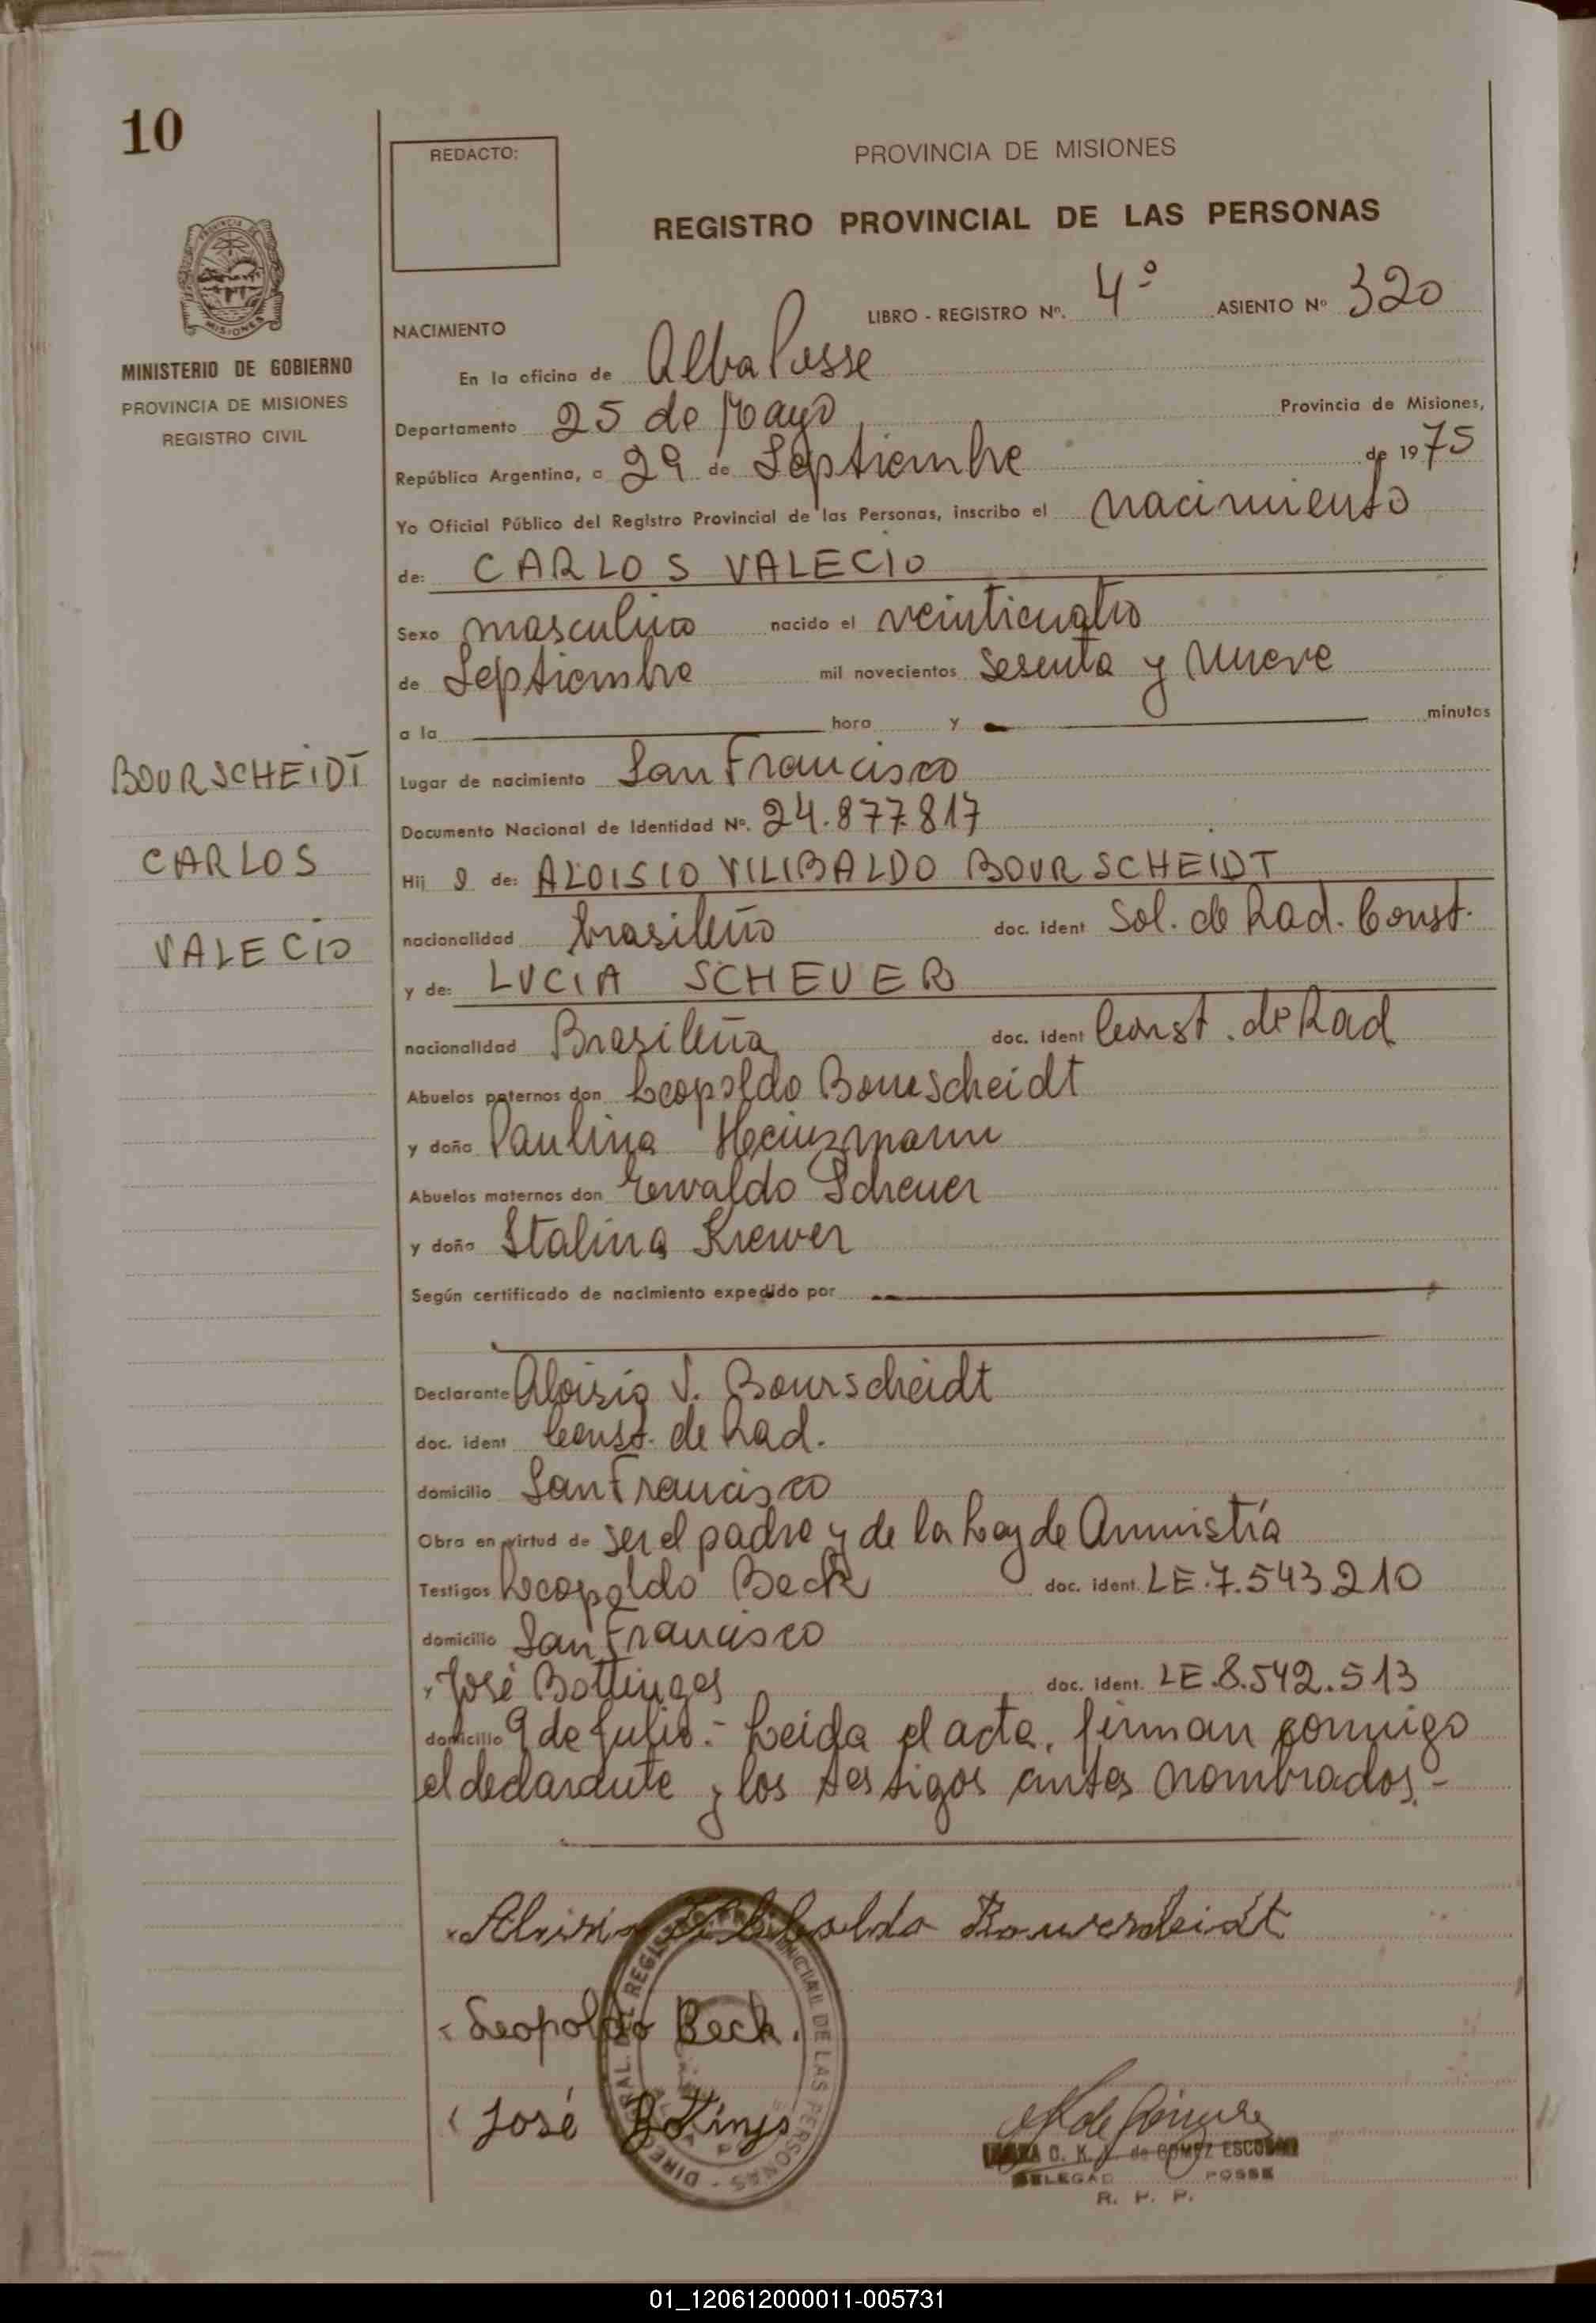 10
REDACTO:
PROVINCIA DE MISIONES
REGISTRO PROVINCIAL DE LAS PERSONAS
MISIONES
MINISTERIO DE GOBIERNO
PROVINCIA DE MISIONES
REGISTRO CIVIL
LIBRO - REGISTRO Nº. 4º ASIENTO Nº 320
NACIMIENTO
En la oficina de Alba Posse
Departamento 25 de Mayo Provincia de Misiones,
República Argentina, a 29 de Septiembre de 1975
Yo Oficial Público del Registro Provincial de las Personas, inscribo el nacimiento
de: CARLOS VALECIO
Sexo masculino nacido el veinticuatro
de Septiembre mil novecientos sesenta y nueve
a la hora y minutos
BOURSCHEIDT
CARLOS
VALECIO
Lugar de nacimiento San Francisco
Documento Nacional de Identidad Nº. 24.877.817
Hij o de: ALOISIO VILIBALDO BOURSCHEIDT
nacionalidad brasileño doc. ident Sol. de Rad. Const.
y de: LUCIA SCHEUER
nacionalidad Brasileña doc. ident Const. de Rad
Abuelos paternos don Leopoldo Bourscheidt
y doña Paulina Heinzmann
Abuelos maternos don Scheuer
y doña Stalina Krewer
Según certificado de nacimiento expedido por
Declarante Aloisio V. Bourscheidt
doc. ident Const. de Rad.
domicilio San Francisco
Obra en virtud de ser el padre y de la Ley de Amnistía
Testigos Leopoldo Beck doc. ident. LE.7.543.210
domicilio San Francisco
y José doc. ident. LE.8.542.513
domicilio 9 de Julio.- Leida el acta, firman conmigo
el declarante y los testigos antes nombrados.-
Leopoldo Beck.
José
DIRECCION GENERAL DEL REGISTRO PROVINCIAL DE LAS PERSONAS
C. K. de GOMEZ ESCOBAR
DELEGAD POSSE
R. P. P.
01_120612000011-005731